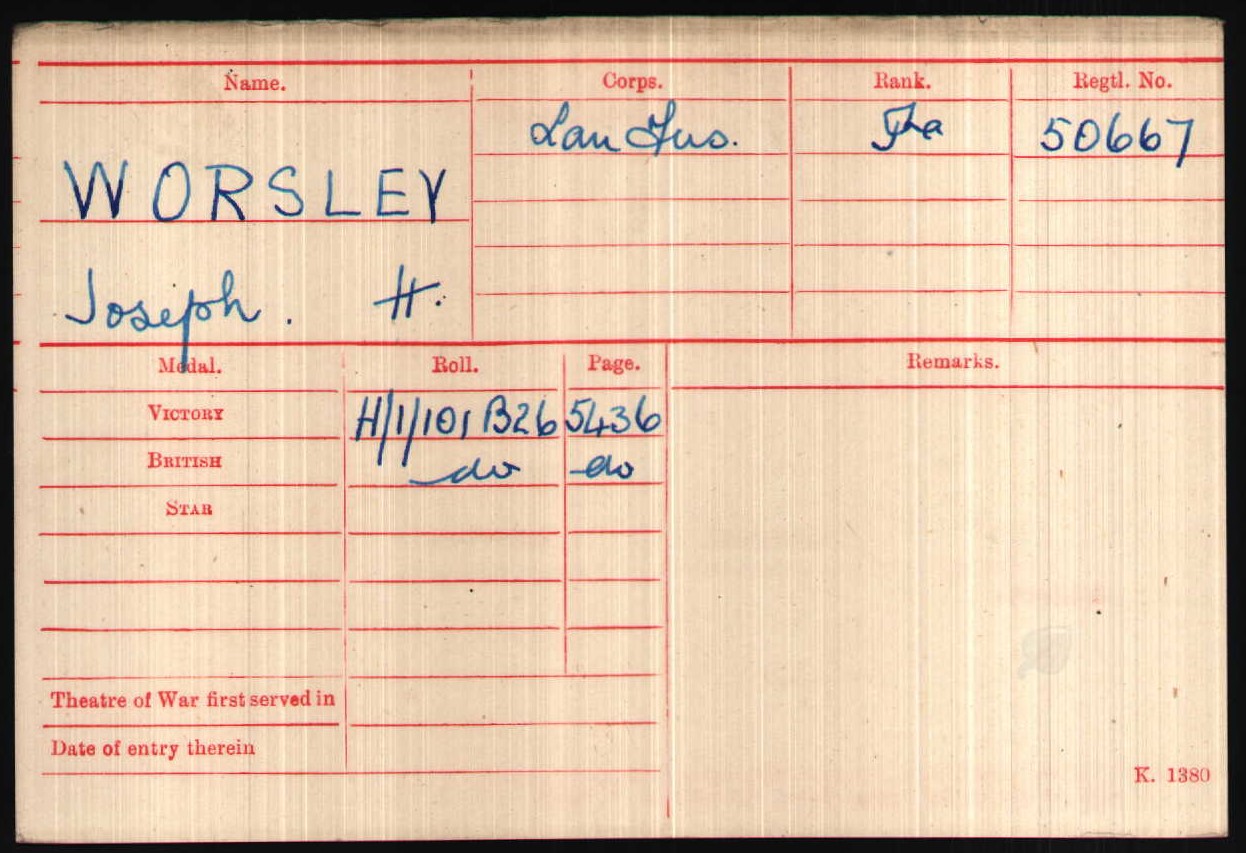 Name. Corps. Rank. Regtl. No.
Lan Fus. 50667
WORSLEY
Joseph. H.
Medal. Roll. Page. Remarks.
VICTORY H/1/101 B26 5436
BRITISH do do
STAR
Theatre of War first served in
Date of entry therein
K. 1380